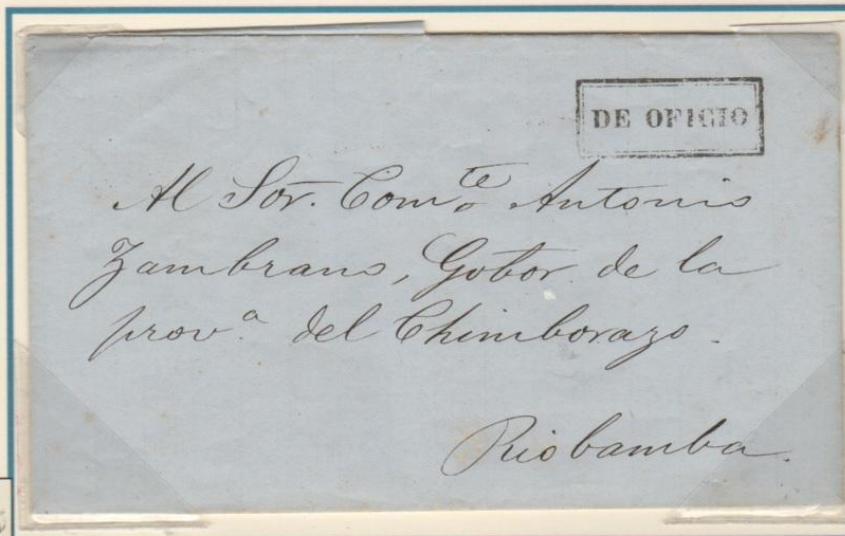 DE OFICIO
Al Sor. Comte. Antonio
Zambrano, Gobor. de la
prova. del Chimborazo.
Riobamba.